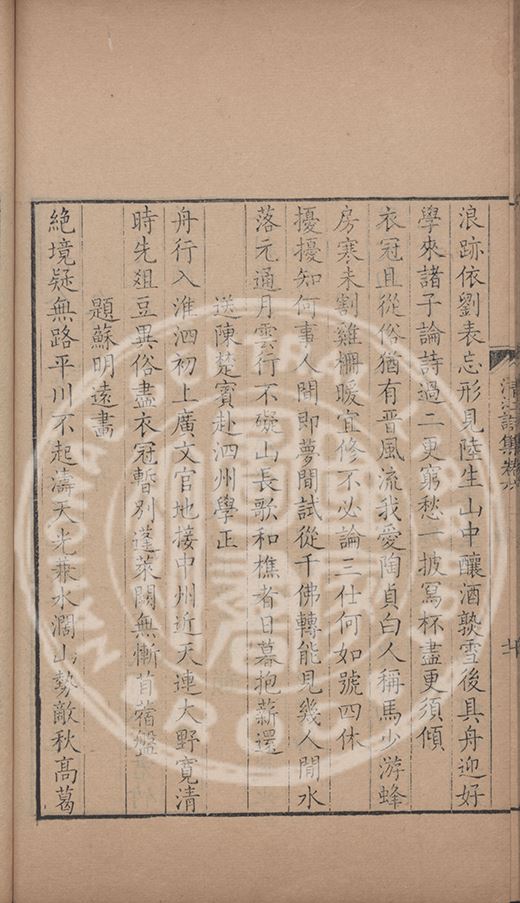 清江詩集卷
浪跡依劉表忘形見陸生山中釀酒熟雪後具舟迎好
學來諸子論詩過二更窮愁一披寫杯盡更須傾
衣冠且從俗猶有晉風流我愛陶貞白人稱馬少游蜂
房寒未割雞柵暖宜修不必論三仕何如號四休
擾擾知何事人間即夢間試從千佛轉能見幾人閒水
落元通月雲行不礙山長歌和樵者日暮抱薪還
送陳楚賓赴泗州學正
舟行入淮泗初上廣文官地接中州近天連大野寬清
時先俎豆異俗盡衣冠暫別蓬萊闕無慚苜蓿盤
題蘇明遠畫
絶境疑無路平川不起濤天光兼水濶山勢敵秋高葛